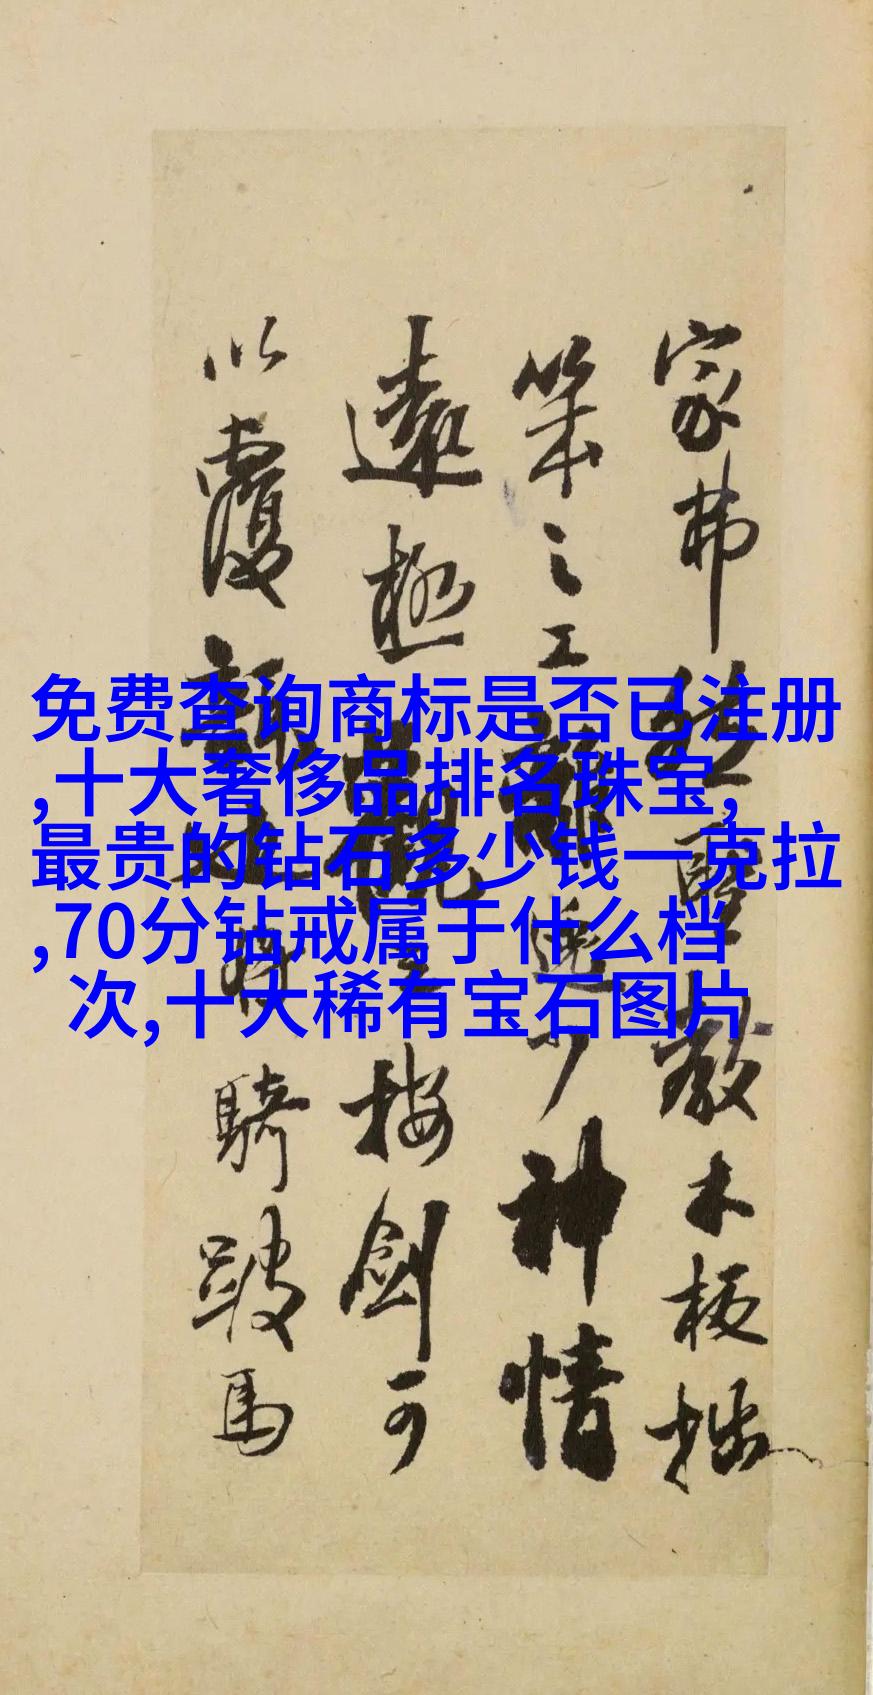 免费查询商标是否已注册
,十大奢侈品排名珠宝,
最贵的钻石多少钱一克拉
,70分钻戒属于什么档
次,十大稀有宝石图片
家弗
教木板拙
筆之工
神情
遠極
按剑可
以覆
騎跛馬